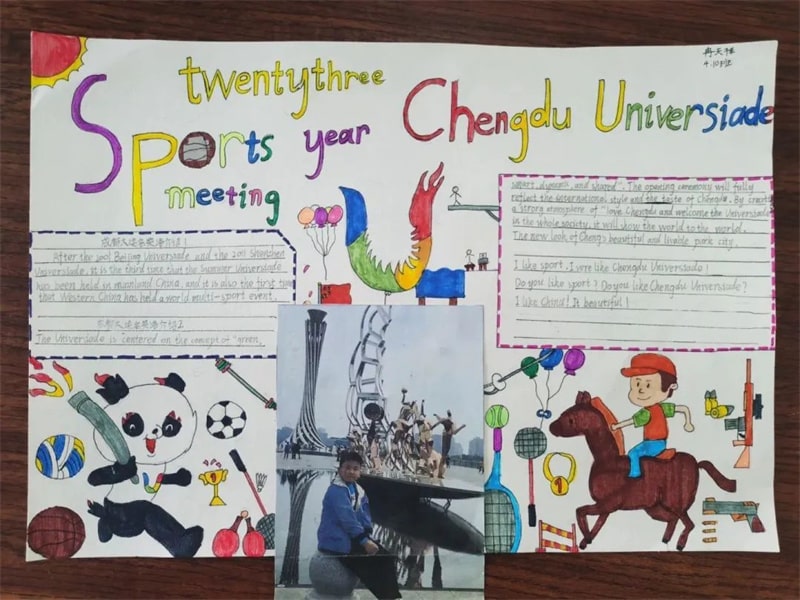 冉天雅
4.10班
twentythree
Sports year
meeting
Chengdu Universiade
成都大运会英语介绍1
After the 2001 Beijing Universiade and the 2011 Shenzhen
Universiade, it is the third time that the summer Universiade
has been held in mainland China, and it is also the first time
that Western China has held a world multi-sport event.
成都大运会英语介绍2
The Universiade is centered on the concept of "green,
smart, dynamic, and shared". The opening ceremony will fully
reflect the international style and the taste of Chengdu. By creating
a strong atmosphere of "love Chengdu and welcome the Universiade"
in the whole society, it will show the world to the world.
The new look of Cheng's beautiful and livable park city.
I like sport. I vrre like Chengdu Universiado!
Do you like sport? Do you like Chengdu Universiade?
I like China! It beautiful!
1
1